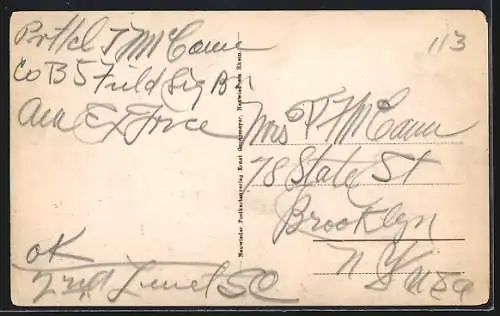 Pvt Hcl T McCann
Co B 5 Field Sig Bn
Am Ex Force
OK
2nd Lieut SC
Neuwieder Postkartenverlag Ernst Neuwied am Rhein.
113
Mrs P McCann
78 State St
Brooklyn
N Y USA